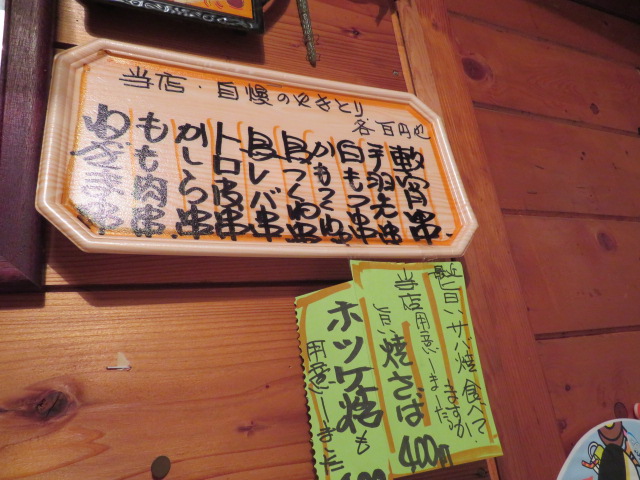 当店・自慢のやきとり
各百円也
軟骨串
手羽先串
白もつ串
かもつくね串
鳥つくね串
鳥レバ串
トロ皮串
かしら串
もも肉串
ねぎま串
最近旨いサバ焼食べてますか
当店用意しました
旨い焼さば400円
ホッケ焼も
用意しました